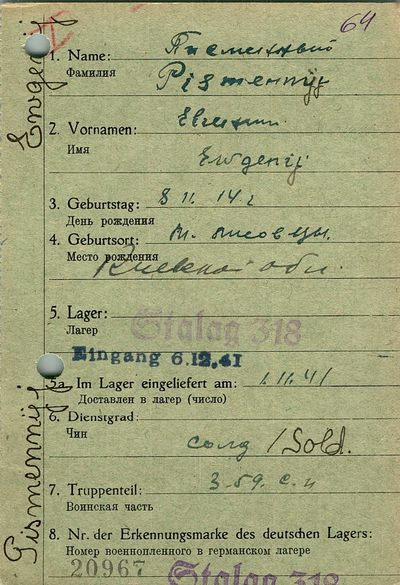 64
1. Name: Письменный
Фамилия Pismennyj
2. Vornamen: Евгений
Имя Ewgenij
3. Geburtstag: 8 11. 14 г
День рождения
4. Geburtsort: м.
Место рождения
Киевской обл.
5. Lager: Stalag 318
Лагер
Eingang 6.12.41
5a. Im Lager eingeliefert am: 1.11.41
Доставлен в лагер (число)
6. Dienstgrad:
Чин солд / Sold.
7. Truppenteil: 3-59. с. п
Воинская часть
8. Nr. der Erkennungsmarke des deutschen Lagers:
Номер военнопленного в германском лагере
20967 Stalag 318
Pismennyj Ewgenij